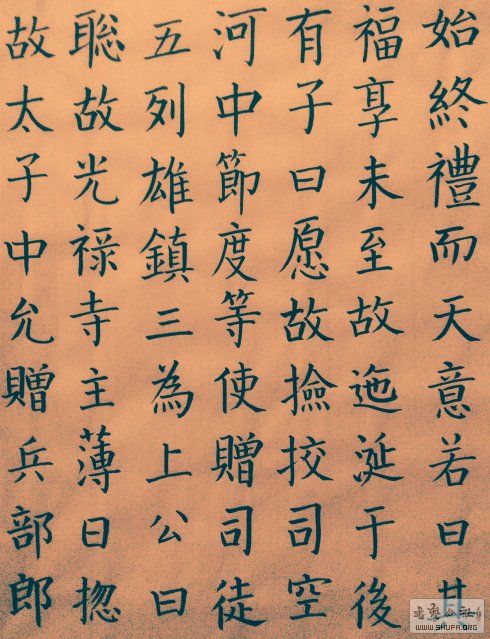 始終禮而天意若曰其
福享未至故迤涎于後
有子曰愿故撿挍司空
河中節度等使贈司徒
五列雄鎮三為上公曰
聡故光禄寺主薄曰揔
故太子中允贈兵部郎
WWW.SHUFA.ORG